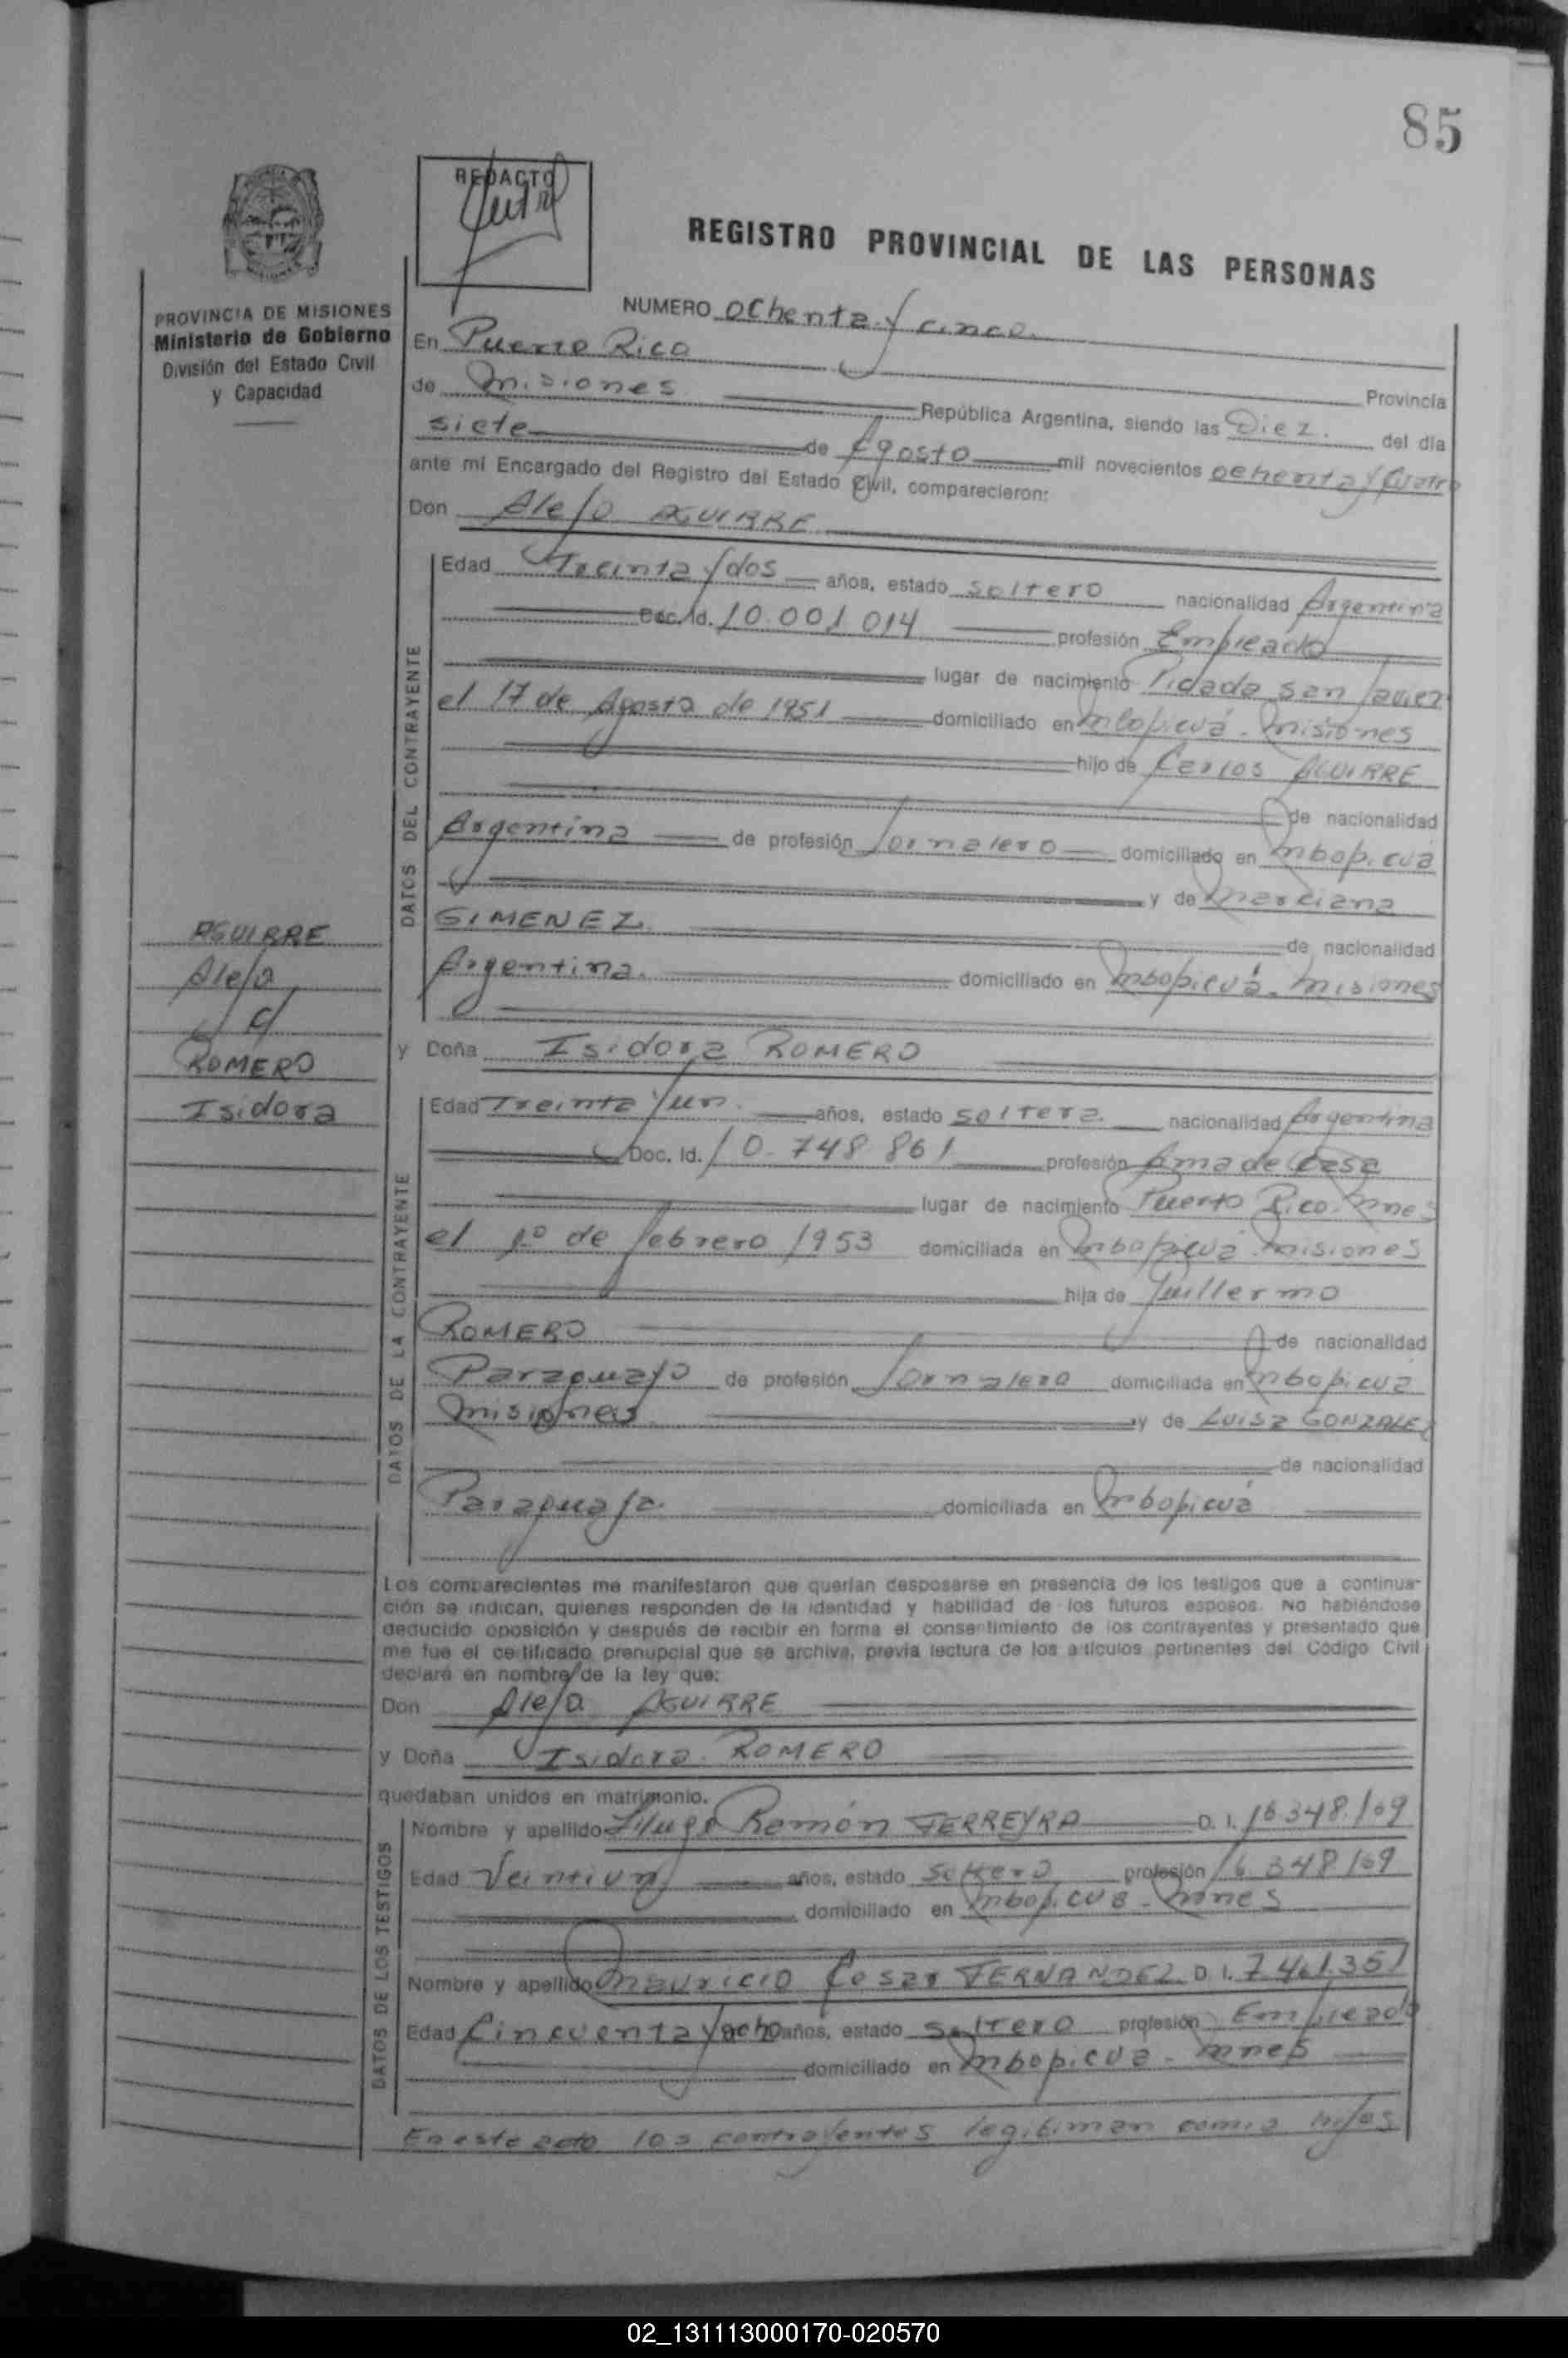 85
REDACTO
REGISTRO PROVINCIAL DE LAS PERSONAS
PROVINCIA DE MISIONES
Ministerio de Gobierno
División del Estado Civil
y Capacidad
NUMERO Ochenta y cinco
En Puerto Rico
Provincia
de Misiones República Argentina, siendo las Diez del día
siete de Agosto mil novecientos ochenta y Cuatro
ante mí Encargado del Registro del Estado Civil, comparecieron:
Don Alejo AGUIRRE
DATOS DEL CONTRAYENTE
Edad Treinta y dos años, estado soltero nacionalidad Argentina
Doc. Id. 10.001.014 profesión Empleado
lugar de nacimiento Picada San Javier
el 17 de Agosto de 1951 domiciliado en Mbopicuá - Misiones
hijo de Carlos AGUIRRE
de nacionalidad
Argentina de profesión Jornalero domiciliado en Mbopicuá
y de Marciana
GIMENEZ de nacionalidad
Argentina domiciliado en Mbopicuá - Misiones
AGUIRRE
Alejo
c/
ROMERO
Isidora
y Doña Isidora ROMERO
DATOS DE LA CONTRAYENTE
Edad Treinta y un años, estado soltera nacionalidad Argentina
Doc. Id. 10.748.861 profesión Ama de Casa
lugar de nacimiento Puerto Rico. Mnes
el 1º de febrero 1953 domiciliada en Mbopicuá Misiones
hija de Guillermo
ROMERO de nacionalidad
Paraguayo de profesión Jornalero domiciliada en Mbopicuá
Misiones y de Luisa GONZALEZ
de nacionalidad
Paraguaya domiciliada en Mbopicuá
Los comparecientes me manifestaron que querían desposarse en presencia de los testigos que a continua-
ción se indican, quienes responden de la identidad y habilidad de los futuros esposos. No habiéndose
deducido oposición y después de recibir en forma el consentimiento de los contrayentes y presentado que
me fue el certificado prenupcial que se archiva, previa lectura de los artículos pertinentes del Código Civil
declaré en nombre de la ley que:
Don Alejo AGUIRRE
y Doña Isidora ROMERO
quedaban unidos en matrimonio.
DATOS DE LOS TESTIGOS
Nombre y apellido Hugo Ramón FERREYRA D. I. 16.348.109
Edad Veintiun años, estado soltero profesión 16.348.109
domiciliado en Mbopicuá - Mnes
Nombre y apellido Mauricio Cesar FERNANDEZ D. I. 7.461.351
Edad Cincuenta y ocho años, estado soltero profesión Empleado
domiciliado en Mbopicuá - Mnes
En este acto los contrayentes legitiman como hijos
02_131113000170-020570